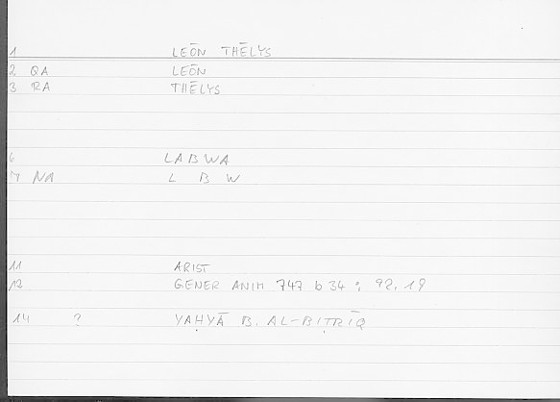 1 LEŌN THĒLYS
2 QA LEŌN
3 RA THĒLYS
6 LABWA
7 NA L B W
11 ARIST
13 GENER ANIM 747 b 34 ; 92,19
14 ? YAḤYĀ B. AL-BIṬRĪQ